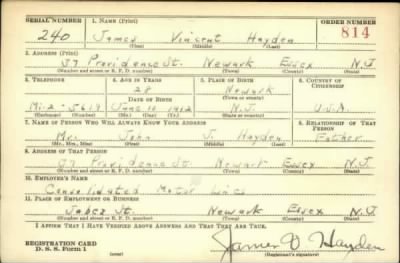 SERIAL NUMBER 1. NAME (Print) ORDER NUMBER
240 James Vincent Hayden 814
(First) (Middle) (Last)
2. ADDRESS (Print)
37 Providence St. Newark Essex N.J.
(Number and street or R. F. D. number) (Town) (County) (State)
3. TELEPHONE 4. AGE IN YEARS 5. PLACE OF BIRTH 6. COUNTRY OF CITIZENSHIP
28 Newark
DATE OF BIRTH (Town or county)
Mi-2-5619 June 10 1912 N.J. U.S.A.
(Exchange) (Number) (Mo.) (Day) (Yr.) (State or country)
7. NAME OF PERSON WHO WILL ALWAYS KNOW YOUR ADDRESS 8. RELATIONSHIP OF THAT PERSON
Mr. John J. Hayden Father
(Mr., Mrs., Miss) (First) (Middle) (Last)
9. ADDRESS OF THAT PERSON
37 Providence St. Newark Essex N.J.
(Number and street or R. F. D. number) (Town) (County) (State)
10. EMPLOYER'S NAME
Consolidated Motor Lines
11. PLACE OF EMPLOYMENT OR BUSINESS
Jabez St. Newark Essex N.J.
(Number and street or R. F. D. number) (Town) (County) (State)
I AFFIRM THAT I HAVE VERIFIED ABOVE ANSWERS AND THAT THEY ARE TRUE.
REGISTRATION CARD
D. S. S. Form 1 (over) James V Hayden
(Registrant's signature)